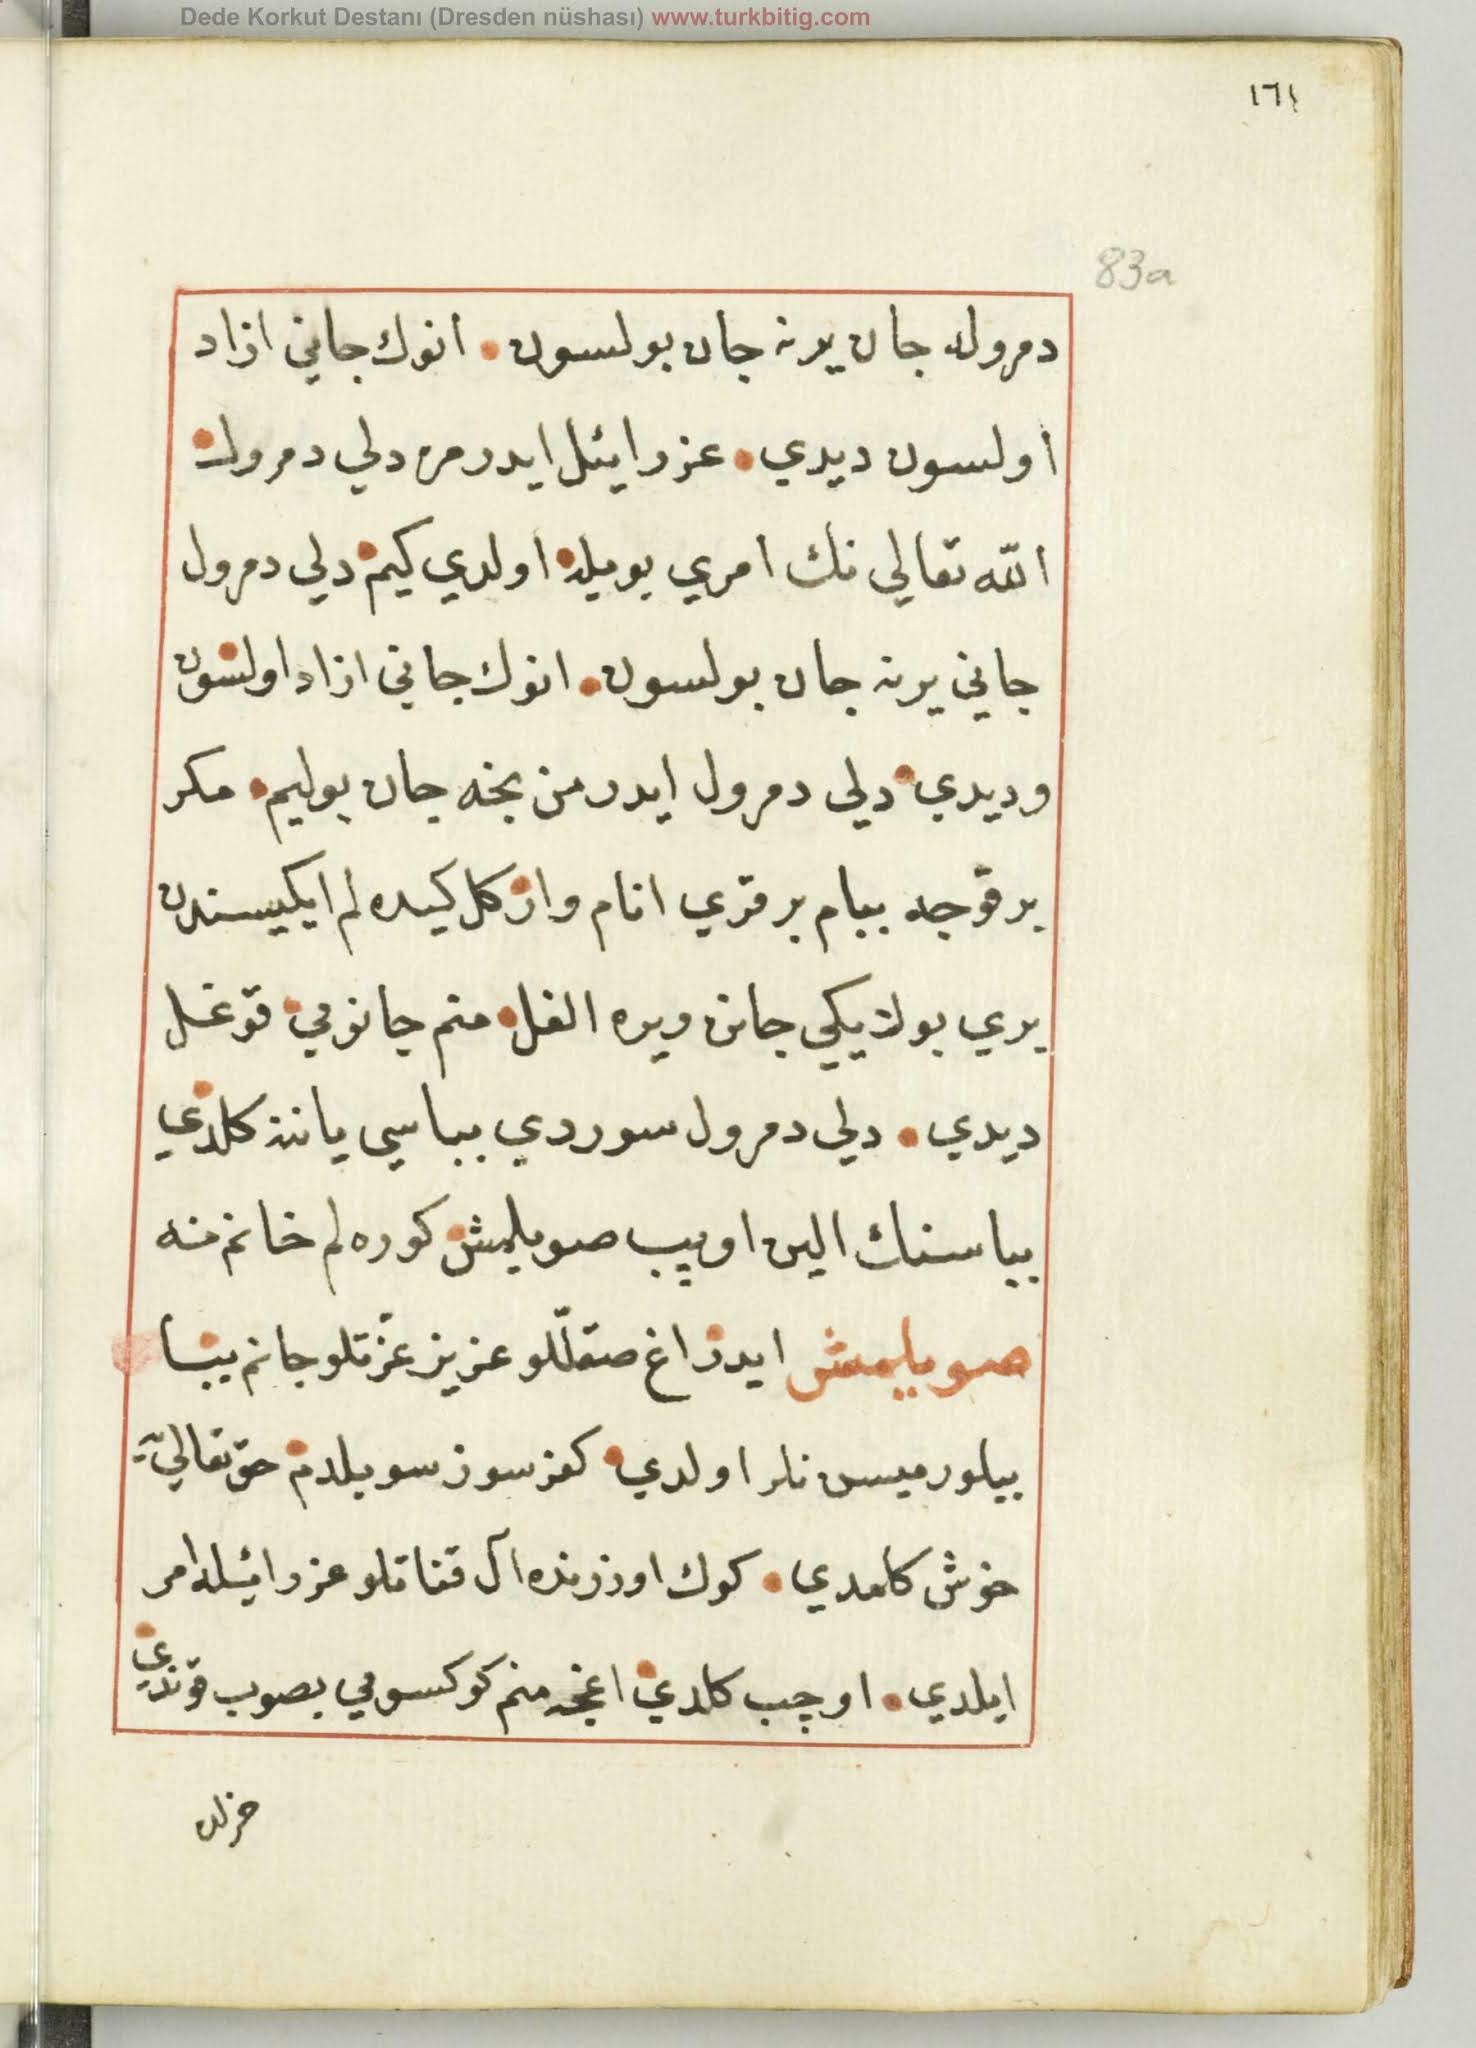 Dede Korkut Destanı (Dresden nüshası) www.turkbitig.com
١٦١
83a
دمرول جان يرنه جان بولسون. انوك جاني ازاد
اولسون ديدي. عزرايئل ايدر مره دلي دمرول
الله تعالي نك امري بويله اولدي كيم دلي دمرول
جاني يرنه جان بولسون. انوك جاني ازاد اولسون
وديدي دلي دمرول ايدر من نجه جان بوليم. مكر
بر قوجه ببام بر قري انام وار كل كيده لم ايكيسندن
بري بولايكي جانن ويره الغل منم جانومي قوغل
ديدي. دلي دمرول سوردي بباسي ياننه كلدي
بباسنك الين اوپيب صويلمش كوره لم خانم نه
صويلمش ايدر اغ صقللو عزيز عزتلو جانم ببا
بيلورميسن نلر اولدي كفر سوز سويلدم حق تعالي يه
خوش كلمدي. كوك اوزرنده آل قناتلو عزرائيله امر
ايلدي. اوچب كلدي اغجه منم كوكسومي بصوب قوندي
خرلده